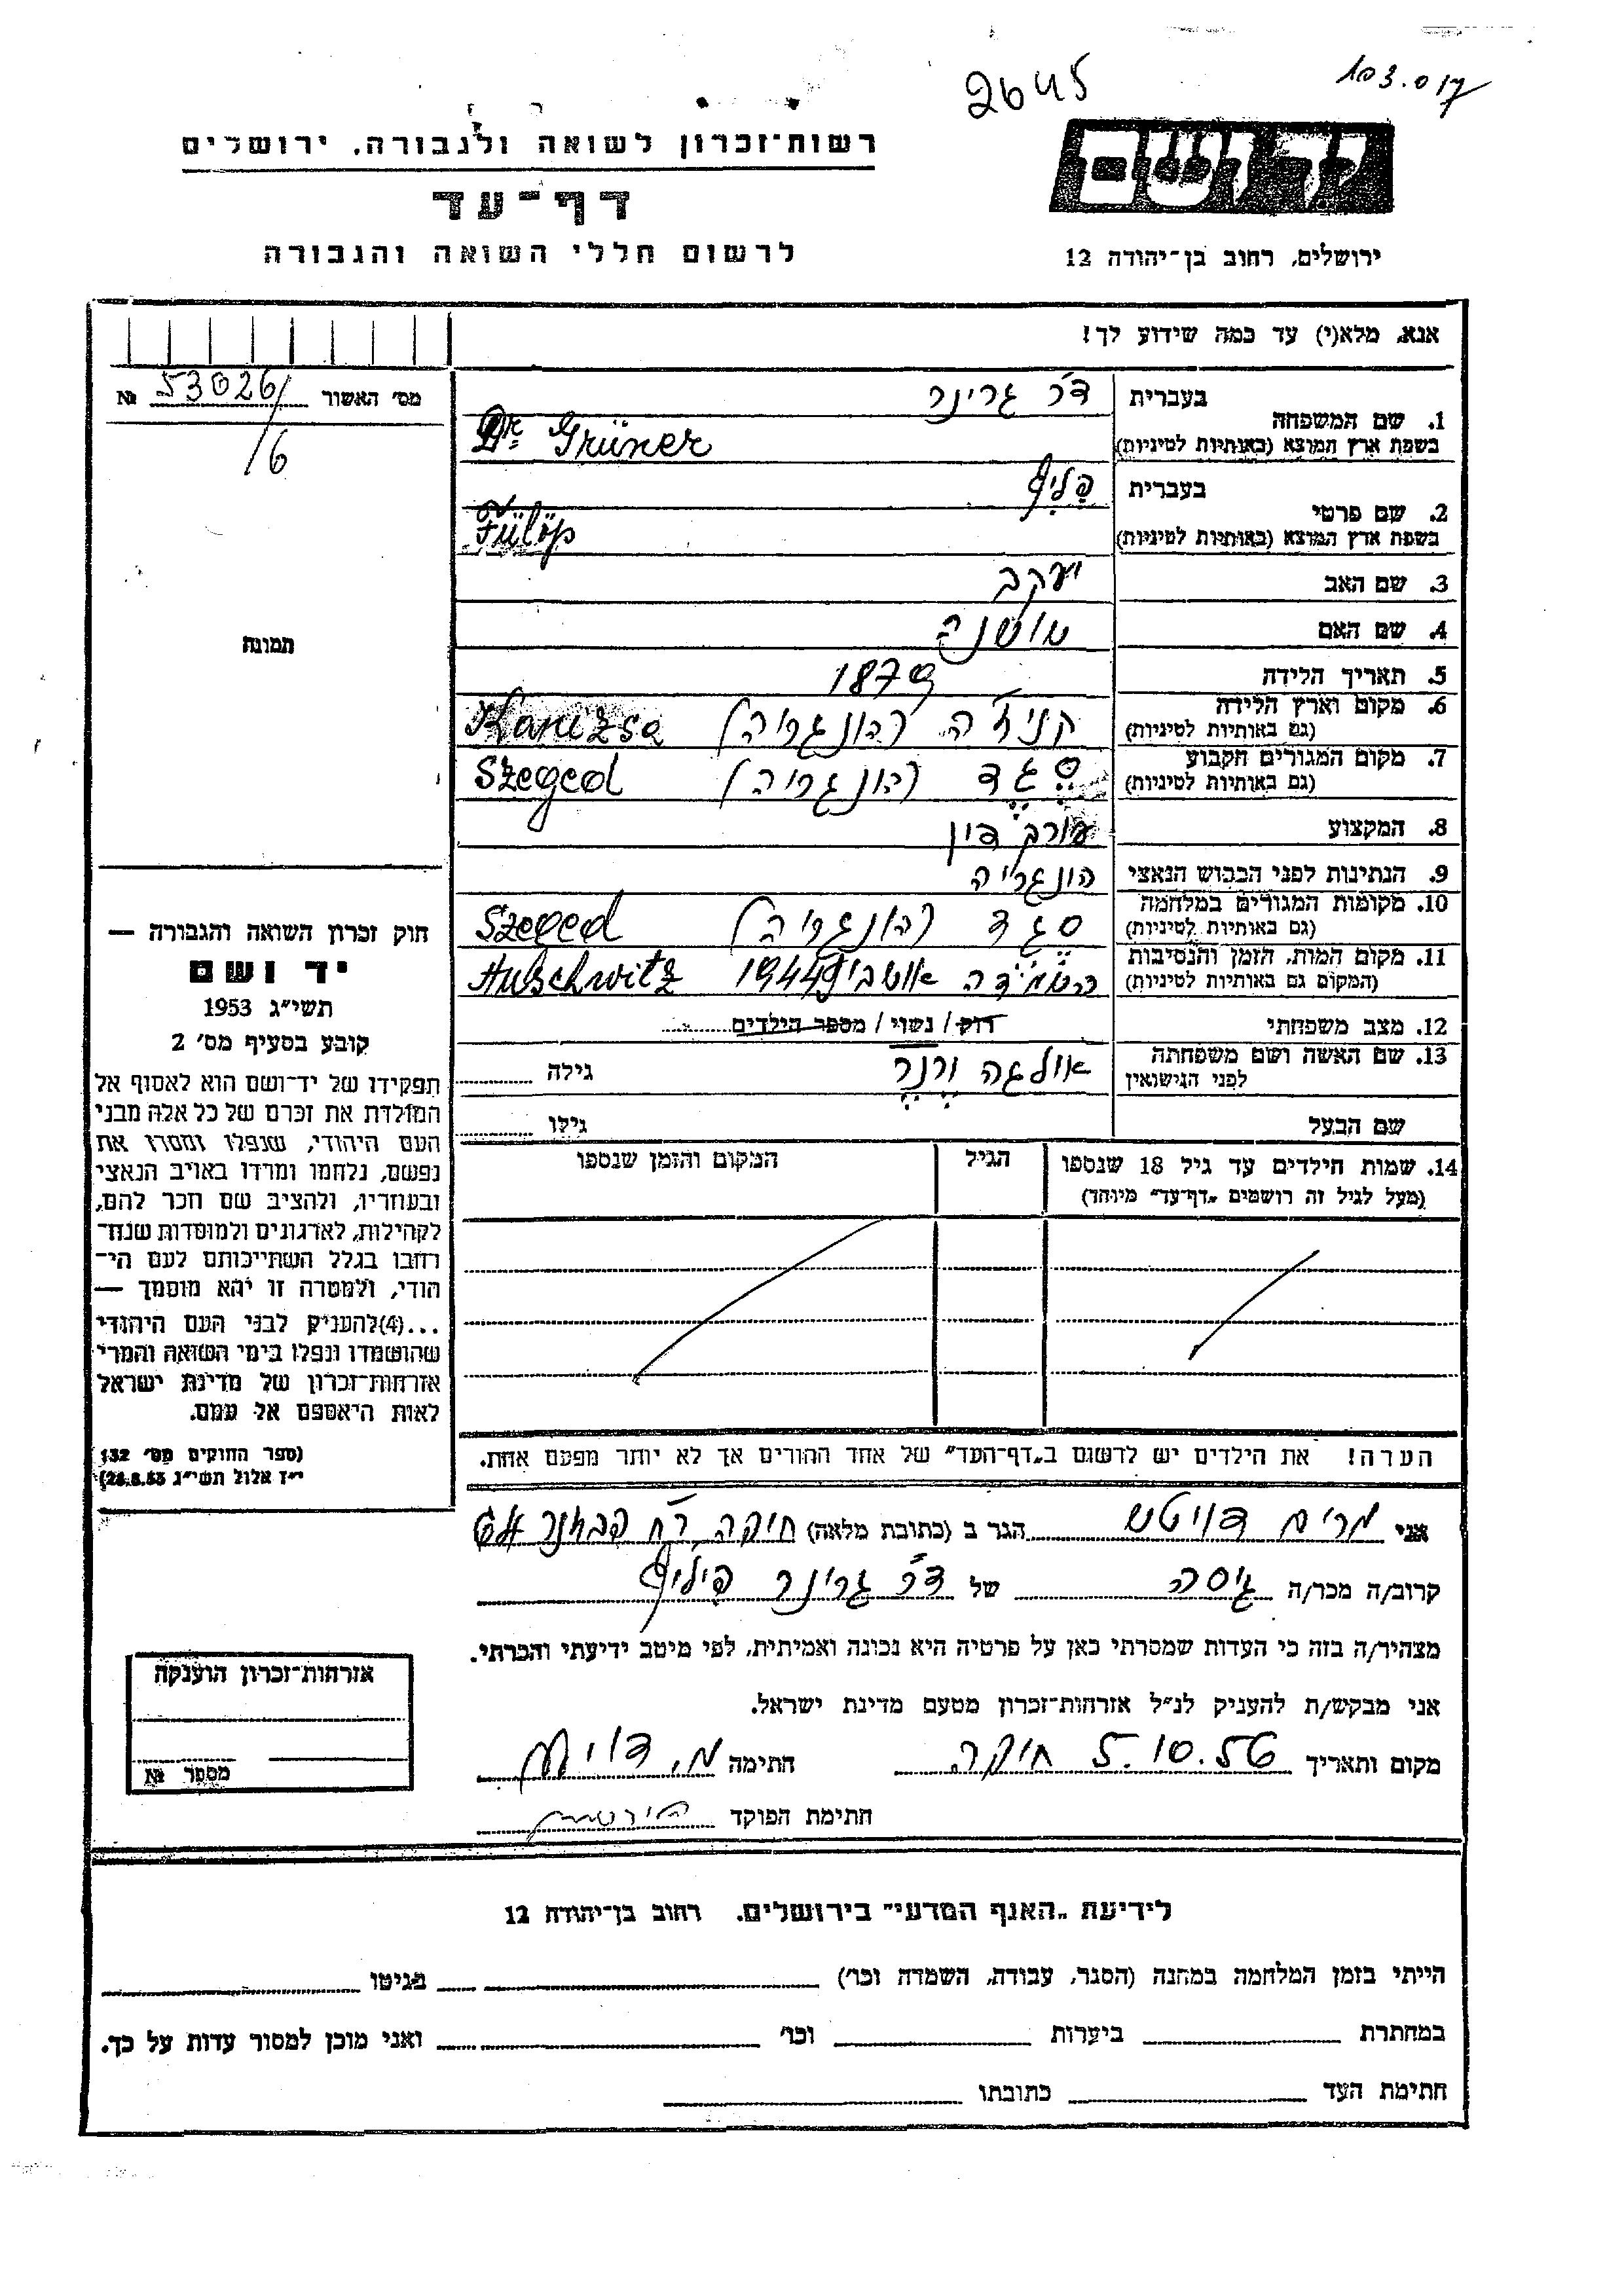 2645
103.017
רשות־זכרון לשואה ולגבורה, ירושלים
דף־עד
לרשום חללי השואה והגבורה
יד ושם
ירושלים, רחוב בן־יהודה 12
אנא, מלא(י) עד כמה שידוע לך!
מס׳ האשור 53026/ №
/6
תמונה
1. שם המשפחה
בעברית ד״ר גרינר
בשפת ארץ המוצא (באותיות לטיניות) Dr. Grüner
2. שם פרטי
בעברית פליפ
בשפת ארץ המוצא (באותיות לטיניות) Fülöp
3. שם האב יעקב
4. שם האם
5. תאריך הלידה 1879
6. מקום וארץ הלידה קניז׳ה (הונגריה) Kanizsa
(גם באותיות לטיניות)
7. מקום המגורים הקבוע סגד (הונגריה) Szeged
(גם באותיות לטיניות)
8. המקצוע עורך דין
9. הנתינות לפני הכבוש הנאצי הונגריה
10. מקומות המגורים במלחמה סגד (הונגריה) Szeged
(גם באותיות לטיניות)
11. מקום המות, הזמן והנסיבות 1944 Auschwitz
(המקום גם באותיות לטיניות)
12. מצב משפחתי רוק / נשוי / מספר הילדים
13. שם האשה ושם משפחתה אולגה ורנר גילה
לפני הנישואין
שם הבעל גילו
14. שמות הילדים עד גיל 18 שנספו הגיל המקום והזמן שנספו
(מעל לגיל זה רושמים „דף־עד״ מיוחד)
הערה! את הילדים יש לרשום ב„דף־העד״ של אחד ההורים אך לא יותר מפעם אחת.
חוק זכרון השואה והגבורה —
יד ושם
תשי״ג 1953
קובע בסעיף מס׳ 2
תפקידו של יד־ושם הוא לאסוף אל
המולדת את זכרם של כל אלה מבני
העם היהודי, שנפלו ומסרו את
נפשם, נלחמו ומרדו באויב הנאצי
ובעוזריו, ולהציב שם וזכר להם,
לקהילות, לארגונים ולמוסדות שנח־
רבו בגלל השתייכותם לעם הי־
הודי, ולמטרה זו יהא מוסמך —
...(4)להעניק לבני העם היהודי
שהושמדו ונפלו בימי השואה והמרי
אזרחות־זכרון של מדינת ישראל
לאות היאספם אל עמם.
(ספר החוקים מס׳ 132
י״ז אלול תשי״ג 28.8.53)
אני מרים דויטש הגר ב (כתובת מלאה) חיפה רח׳
קרוב/ה מכר/ה גיסה של ד״ר גרינר פיליפ
מצהיר/ה בזה כי העדות שמסרתי כאן על פרטיה היא נכונה ואמיתית, לפי מיטב ידיעתי והכרתי.
אני מבקש/ת להעניק לנ״ל אזרחות־זכרון מטעם מדינת ישראל.
מקום ותאריך 5.10.56 חיפה חתימה מ. דויטש
חתימת הפוקד
אזרחות־זכרון הוענקה
מספר №
לידיעת „האגף המדעי״ בירושלים, רחוב בן־יהודה 12
הייתי בזמן המלחמה במחנה (הסגר, עבודה, השמדה וכו׳) בגיטו
במחתרת ביערות וכו׳ ואני מוכן למסור עדות על כך.
חתימת העד כתובתו